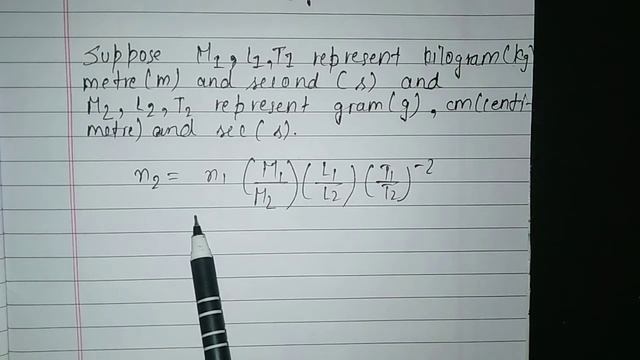 Suppose M1, L1, T1 represent kilogram (kg)
metre (m) and second (s) and
M2, L2, T2 represent gram (g), cm (centi-
metre) and sec (s).
n2 = n1 (M1/M2) (L1/L2) (T1/T2)^-2